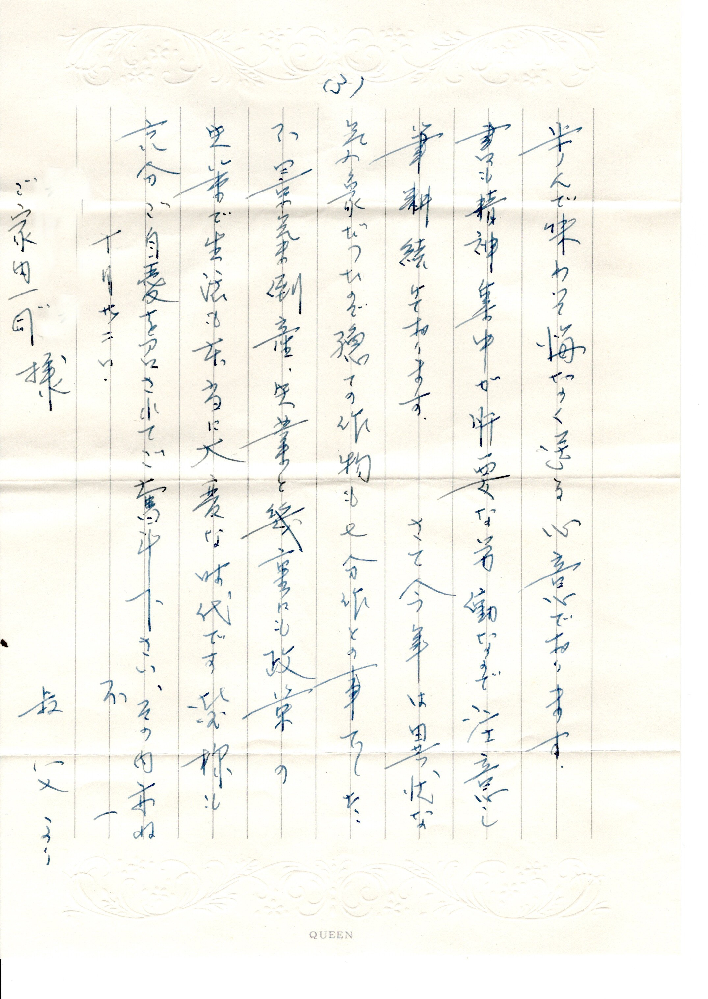 (3)
学んだ味わって悔なく送る心意であります。
書も精神集中が肝要な労働なので注意し
筆耕続けております。 さて今年は異状な
気象だったので穏ての作物も七分作との事でした
不景気倒産、失業と幾重にも政策の
失策で生活も本当に大変な時代です 皆様も
充分ご自愛を召されてご奮斗下さい、その内 訪ね
不一
十月廿二日.
ご家内一同様
叔父より
QUEEN